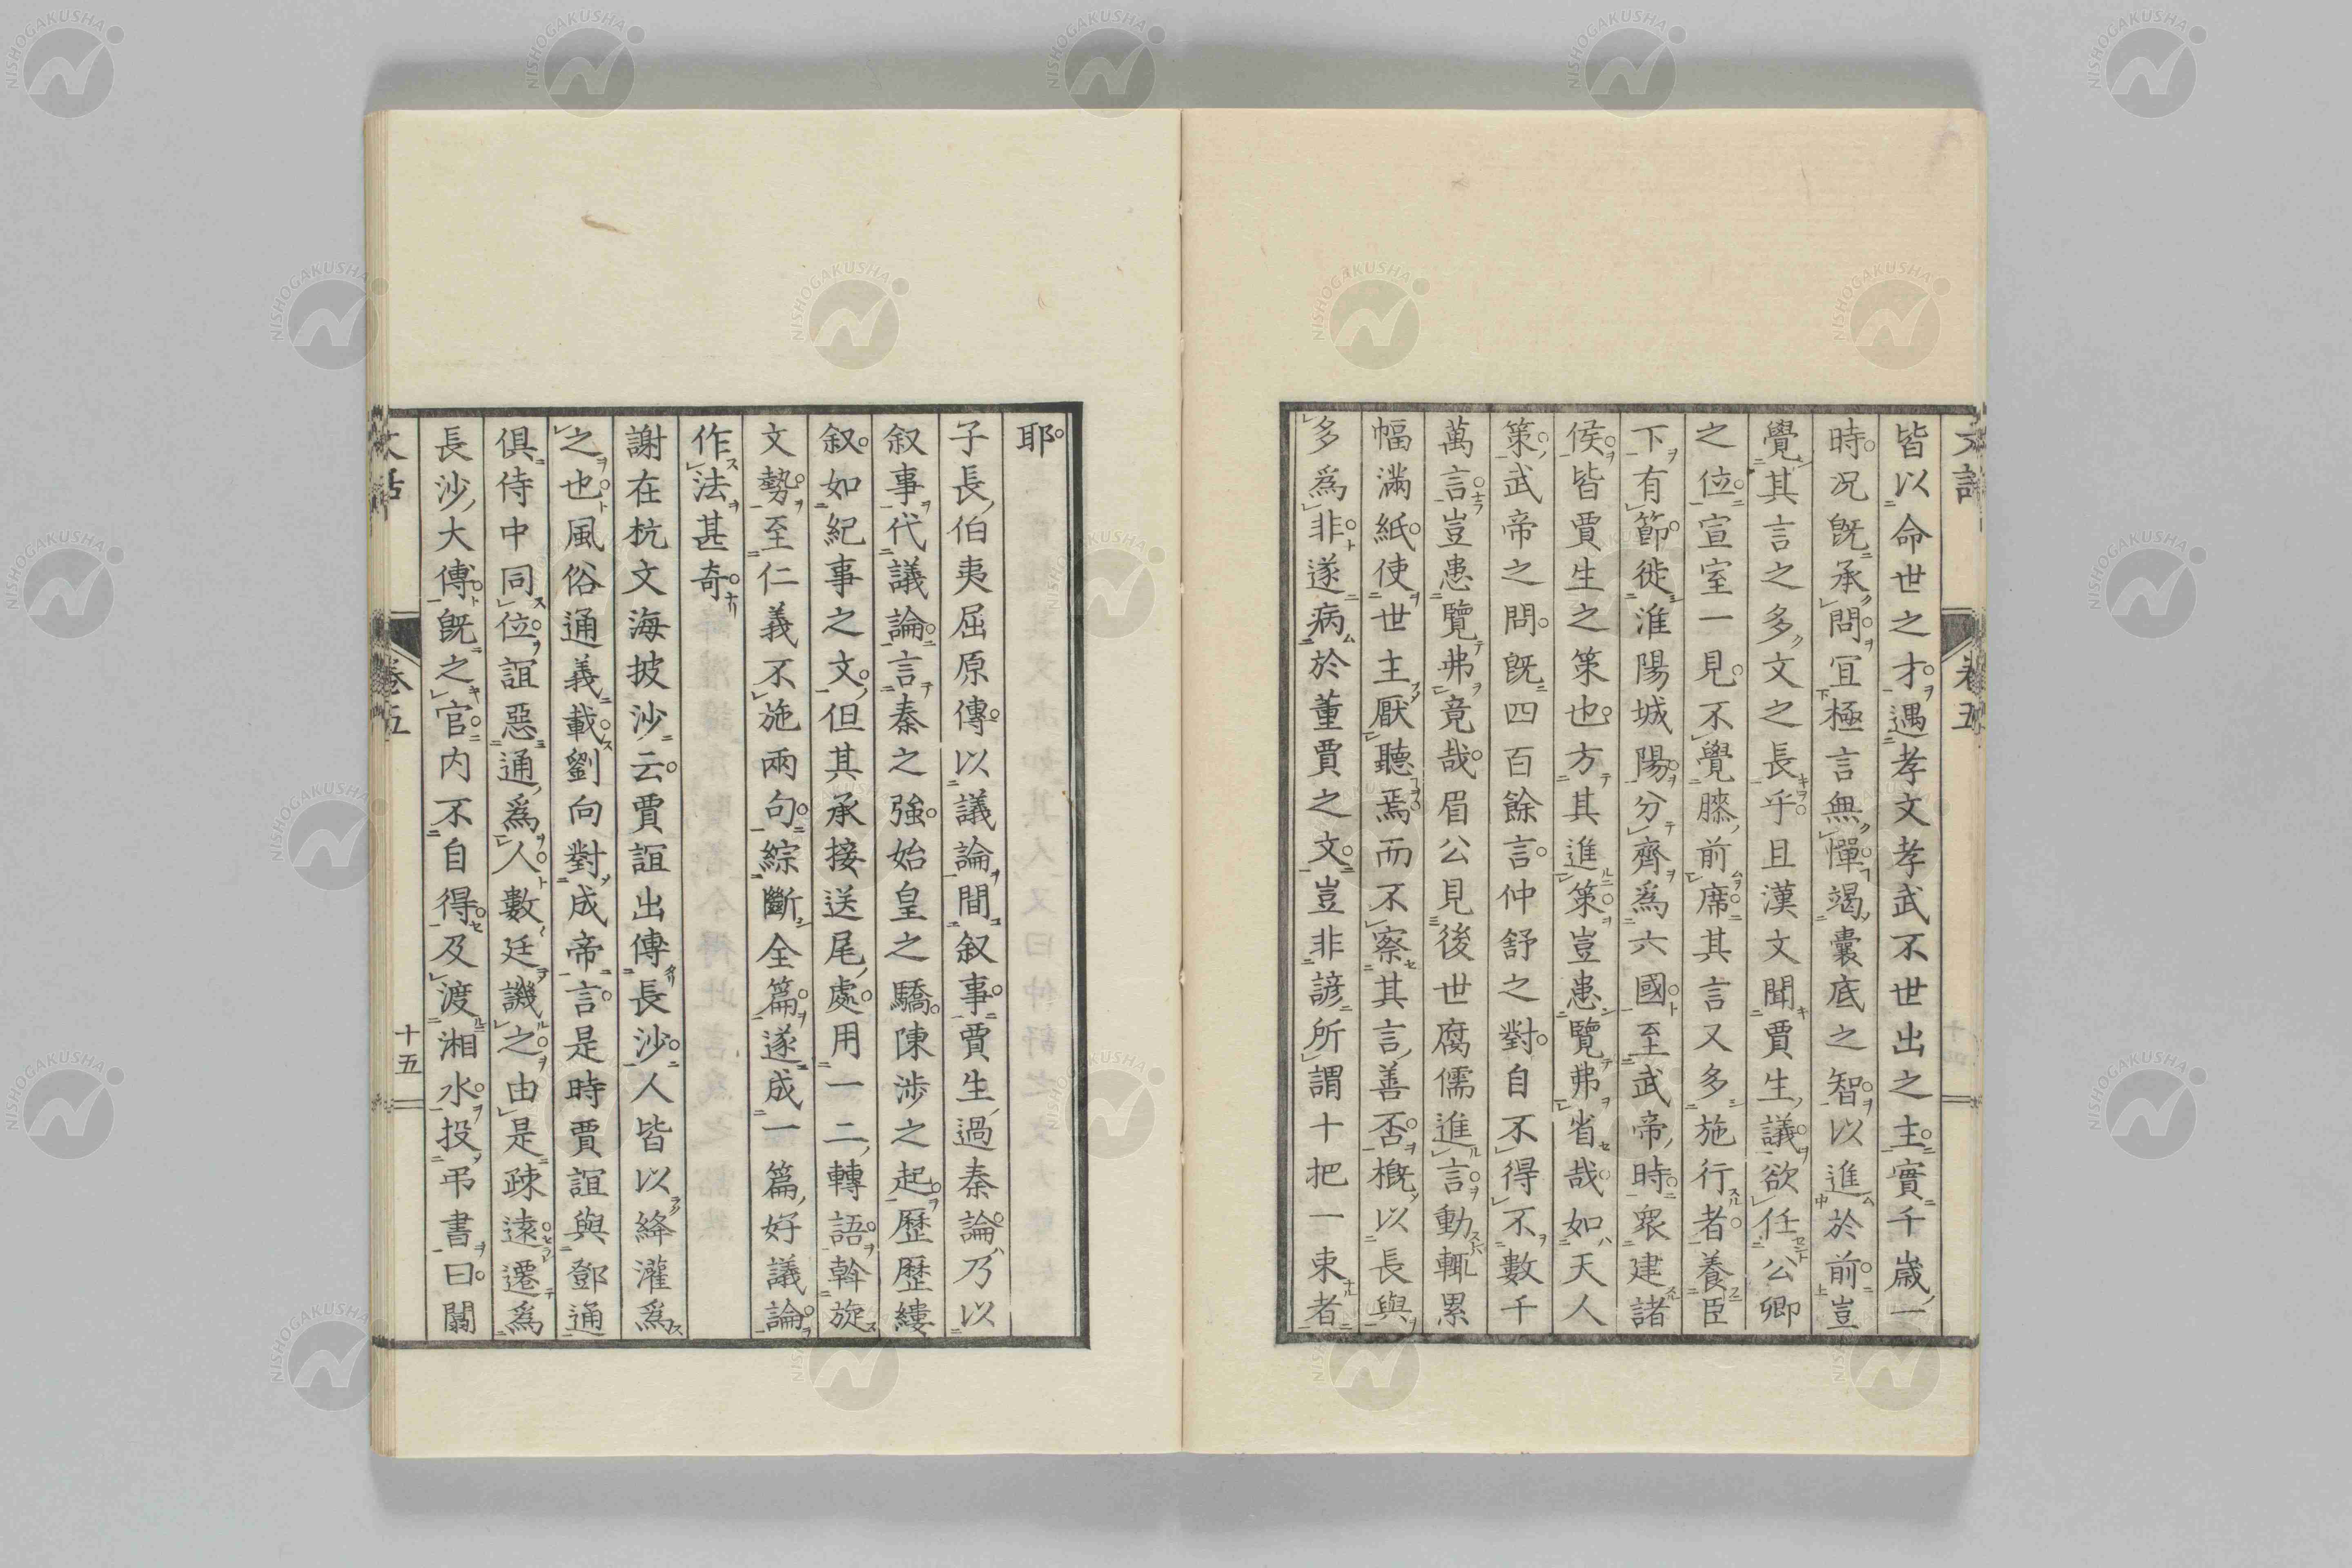 文話 卷五
皆以命世之才遇孝文孝武不世出之主實千歲一
時况既承問宜極言無憚竭囊底之智以進於前豈
覺其言之多文之長乎且漢文聞賈生議欲任公卿
之位宣室一見不覺膝前席其言又多施行者養臣
下有節徙淮陽城陽分齊爲六國至武帝時衆建諸
侯皆賈生之策也方其進策豈患覽弗省哉如天人
策武帝之問既四百餘言仲舒之對自不得不數千
萬言豈患覽弗竟哉眉公見後世腐儒進言動輒累
幅滿紙使世主厭聽焉而不察其言善否概以長與
多爲非遂病於董賈之文豈非諺所謂十把一束者
耶
子長伯夷屈原傳以議論間叙事賈生過秦論乃以
叙事代議論言秦之強始皇之驕陳涉之起歷歷縷
叙如紀事之文但其承接送尾處用一二轉語斡旋
文勢至仁義不施兩句綜斷全篇遂成一篇好議論
作法甚奇
謝在杭文海披沙云賈誼出傳長沙人皆以絳灌爲
之也風俗通義載劉向對成帝言是時賈誼與鄧通
俱侍中同位誼惡通爲人數廷譏之由是疎遠遷爲
長沙大傅既之官内不自得及渡湘水投弔書曰闒
文話 卷五 十五
NISHOGAKUSHA